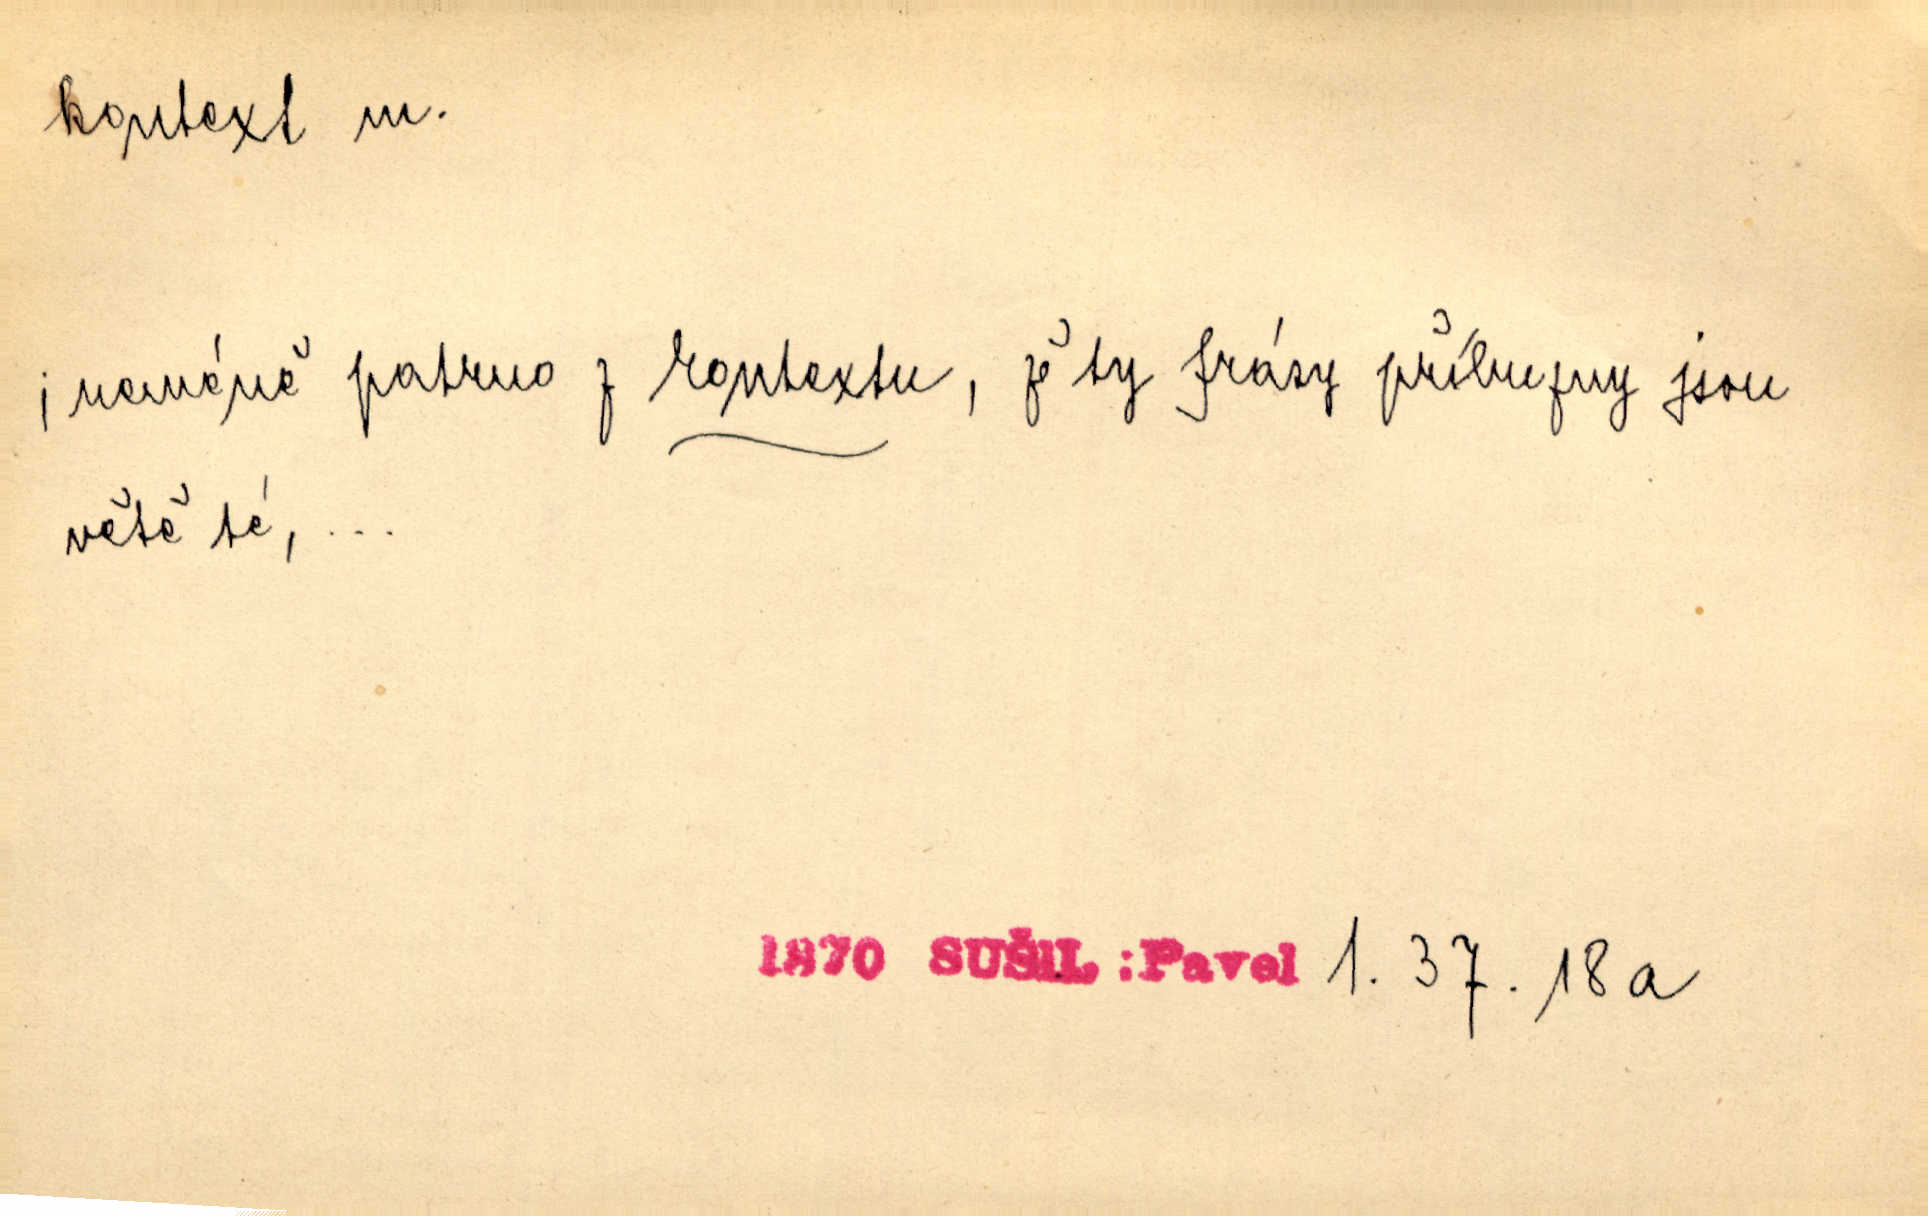 kontext m.
; neméně patrno z kontextu, že ty frásy příbuzny jsou
větě té, ...
1870 SUŠIL :Pavel 1. 37. 18a